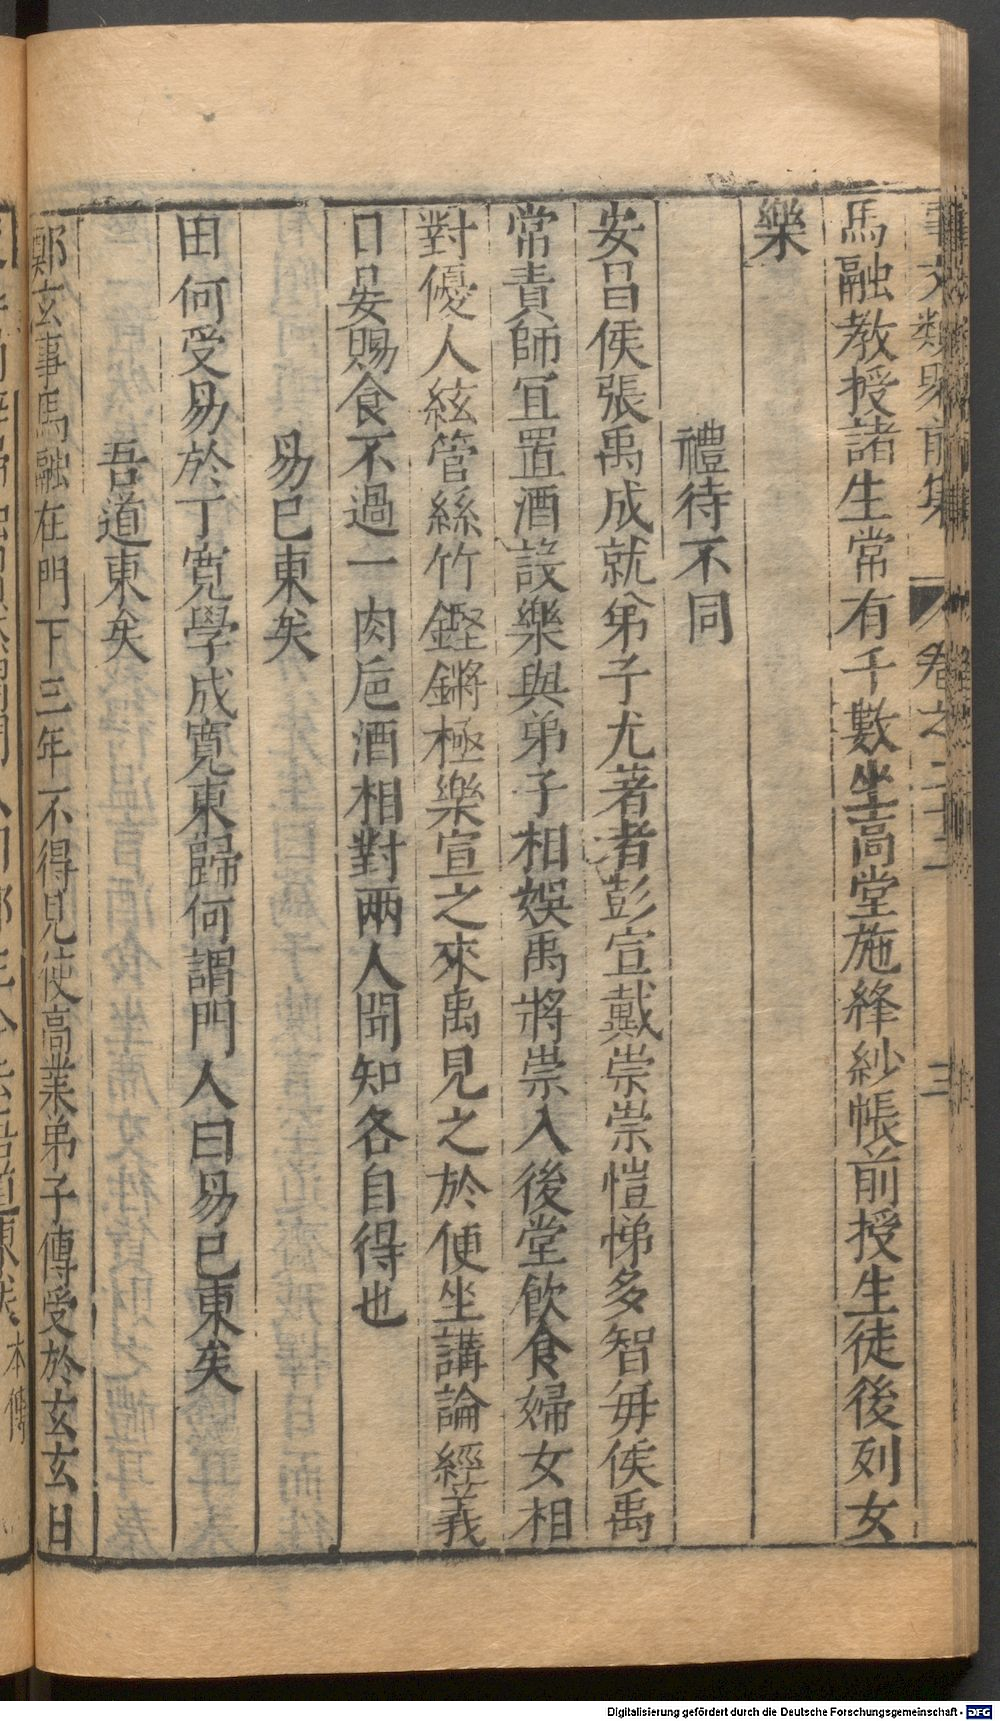 事文類聚前集 卷之二十二 三
馬融教授諸生常有千數坐高堂施絳紗帳前授生徒後列女
樂
禮待不同
安昌侯張禹成就弟子尤著者彭宣戴崇崇愷悌多智每侯禹
常責師宜置酒設樂與弟子相娛禹將崇入後堂飲食婦女相
對優人絃管絲竹鏗鏘極樂宣之來禹見之於便坐講論經義
日晏賜食不過一肉巵酒相對兩人聞知各自得也
易已東矣
田何受易於丁寬學成寬東歸何謂門人曰易已東矣
吾道東矣
鄭玄事馬融在門下三年不得見使高業弟子傳受於玄玄日
本傳
Digitalisierung gefördert durch die Deutsche Forschungsgemeinschaft - DFG